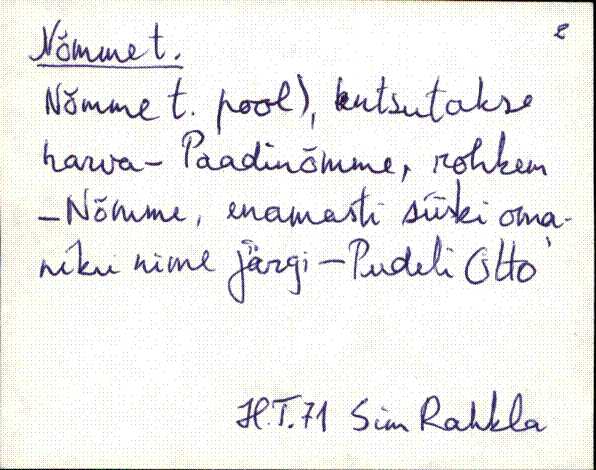 Nõmme t. 2
Nõmme t. pool), kutsutakse
harva – Paadinõmme, rohkem
– Nõmme, enamasti siiski oma-
niku nime järgi – Pudeli Otto
H.T.71 Sim Rahkla